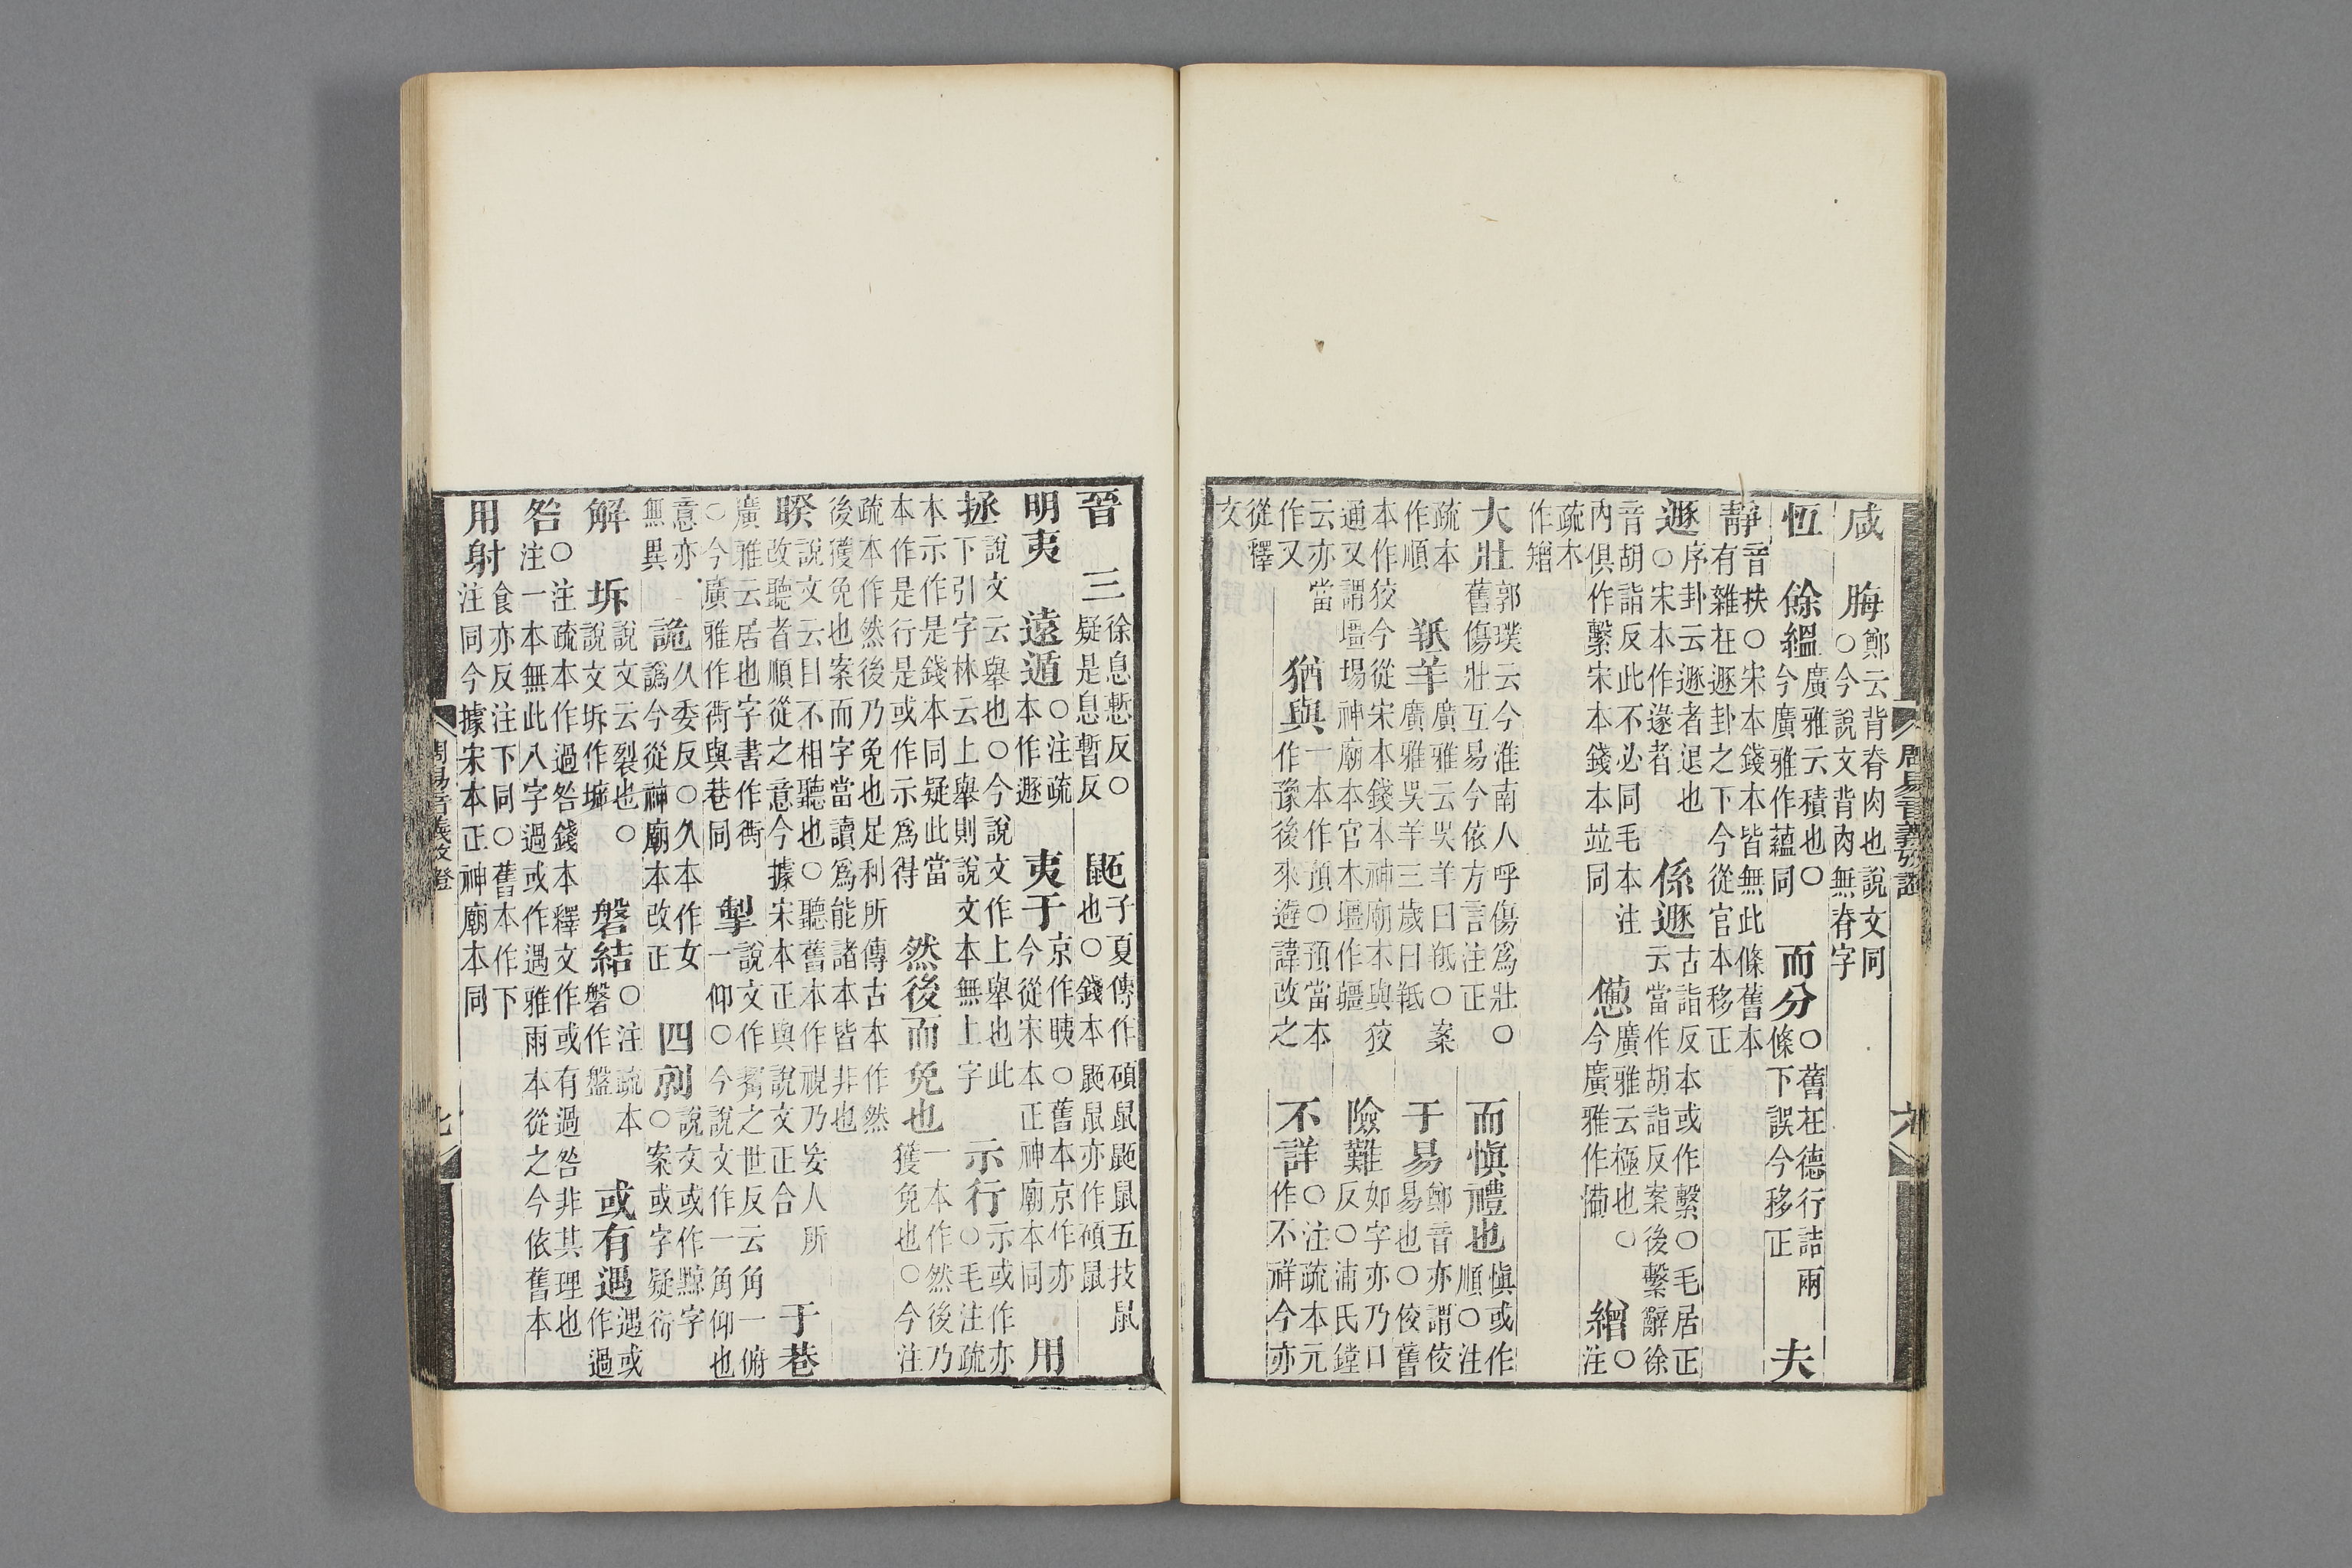 周易音義攷證
六
咸　脢鄭云背脊肉也說文同○今說文背肉無脊字
恆　餘縕廣雅云積也○今廣雅作蘊同　而分○舊在德行詰兩條下誤今移正　夫
靜音扶○宋本錢本皆無此條舊本有雜在遯卦之下今從官本移正
遯序卦云遯者退也○宋本作遂者　係遯古詣反本或作繫○毛居正云當作胡詣反案後繫辭徐
音胡詣反此不必同毛本注內俱作繫宋本錢本竝同　憊廣雅云極也○今廣雅作㥬　繒○注
疏本作矰
大壯郭璞云今淮南人呼傷爲壯○舊傷壯互易今依方言注正　而愼禮也愼或作順○注
疏本作順　羝羊廣雅云吳羊曰羝○案廣雅吳羊三歲曰羝　于易鄭音亦謂佼易也○佼舊
本作狡今從宋本錢本神廟本與狡通又謂壃場神廟本官本壃作疆　險難如字亦乃旦反○浦氏鏜
云亦當作又　猶與一本作預○預當本作豫後來避諱改之　不詳○注疏本元作不祥今亦
從釋文
晉　三徐息慙反○疑是息暫反　鼫子夏傳作碩鼠鼫鼠五技鼠也○錢本鼫鼠亦作碩鼠
明夷　遠遁○注疏本作遯　夷于京作眱○舊本京作亦今從宋本正神廟本同　用
拯說文云舉也○今說文作上舉也此下引字林云上舉則說文本無上字　示行示或作亦○毛注疏
本示作是錢本同疑此當本作是行是或作示爲得　然後而免也一本作然後乃獲免也○今注
疏本作然後乃免也足利所傳古本作然後獲免也案而字當讀爲能諸本皆非也
睽說文云目不相聽也○聽舊本作視乃妄人所改聽者順從之意今據宋本正與說文正合　于巷
廣雅云居也字書作衖○今廣雅作衖與巷同　掣說文作觢之世反云角一俯一仰○今說文作一角仰也
意亦無異　詭久委反○久本作女譌今從神廟本改正　四剠說文或作黥字○案或字疑衍
解　坼說文云裂也○說文坼作㙤　磐結○注疏本磐作盤　或有遇遇或作過
咎○注疏本作過咎錢本釋文作或有過咎非其理也注一本無此八字過或作遇雅雨本從之今依舊本
用射食亦反注下同○舊本作下注同今據宋本正神廟本同
周易音義攷證
七